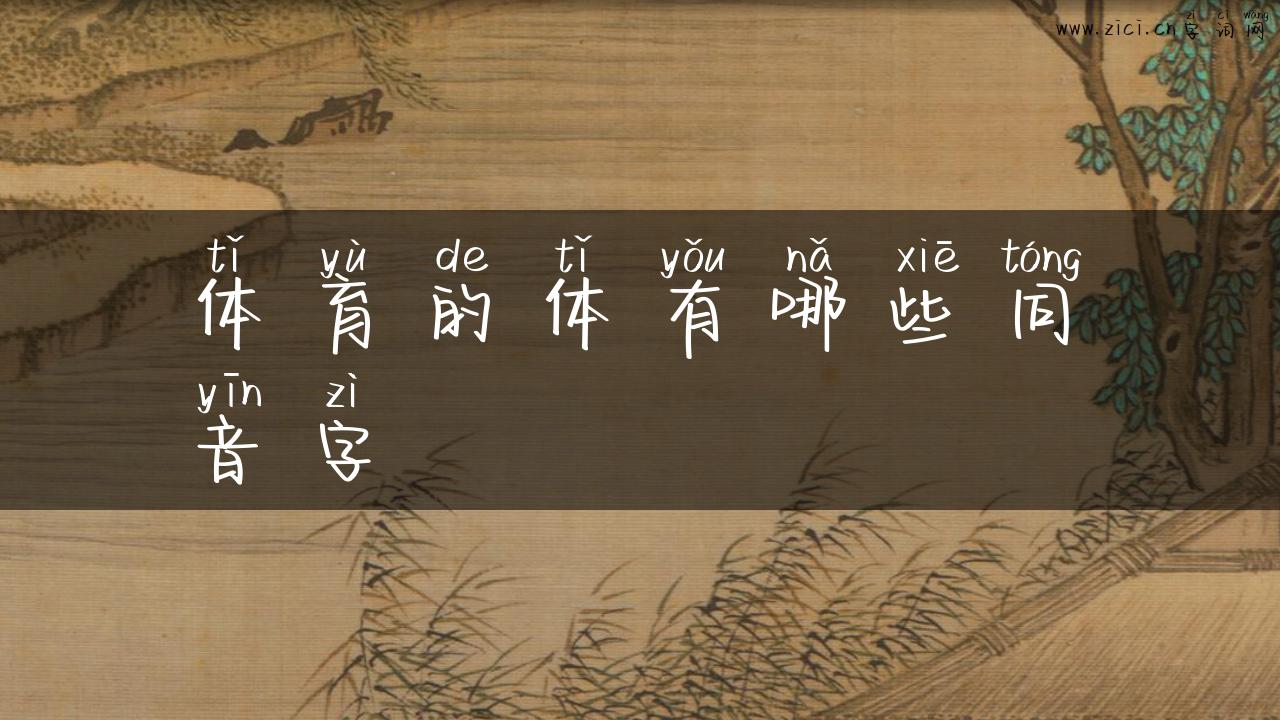 zì cí wǎng
www.zici.cn 字词网
tǐ yù de tǐ yǒu nǎ xiē tóng
体育的体有哪些同
yīn zì
音字